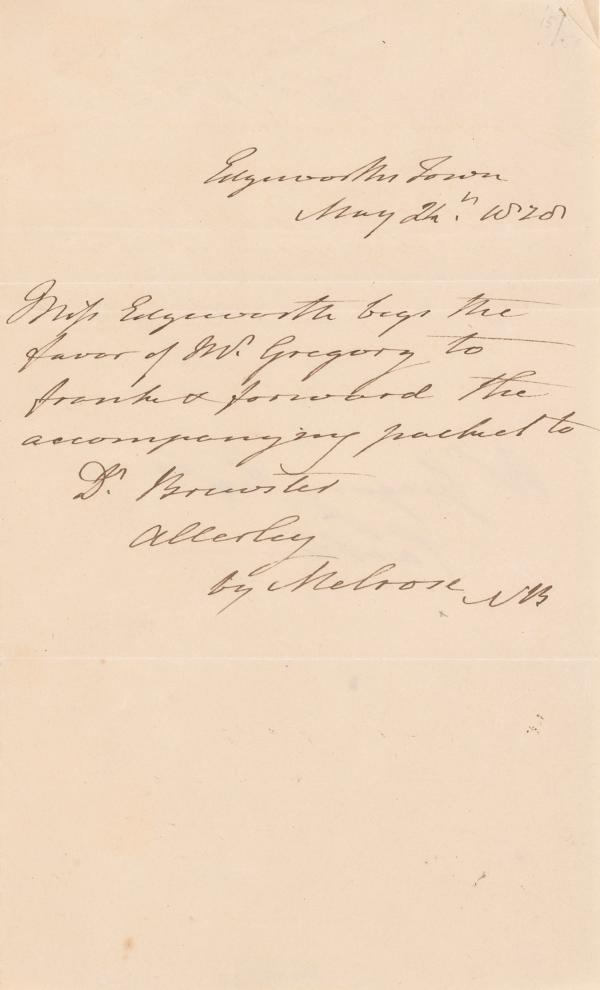 Edgeworths Town
May 24th. 1828
Miss Edgeworth begs the
favor of Mr. Gregory to
frank & forward the
accompanying packet to
Dr. Brewster
Allerley
by Melrose NB